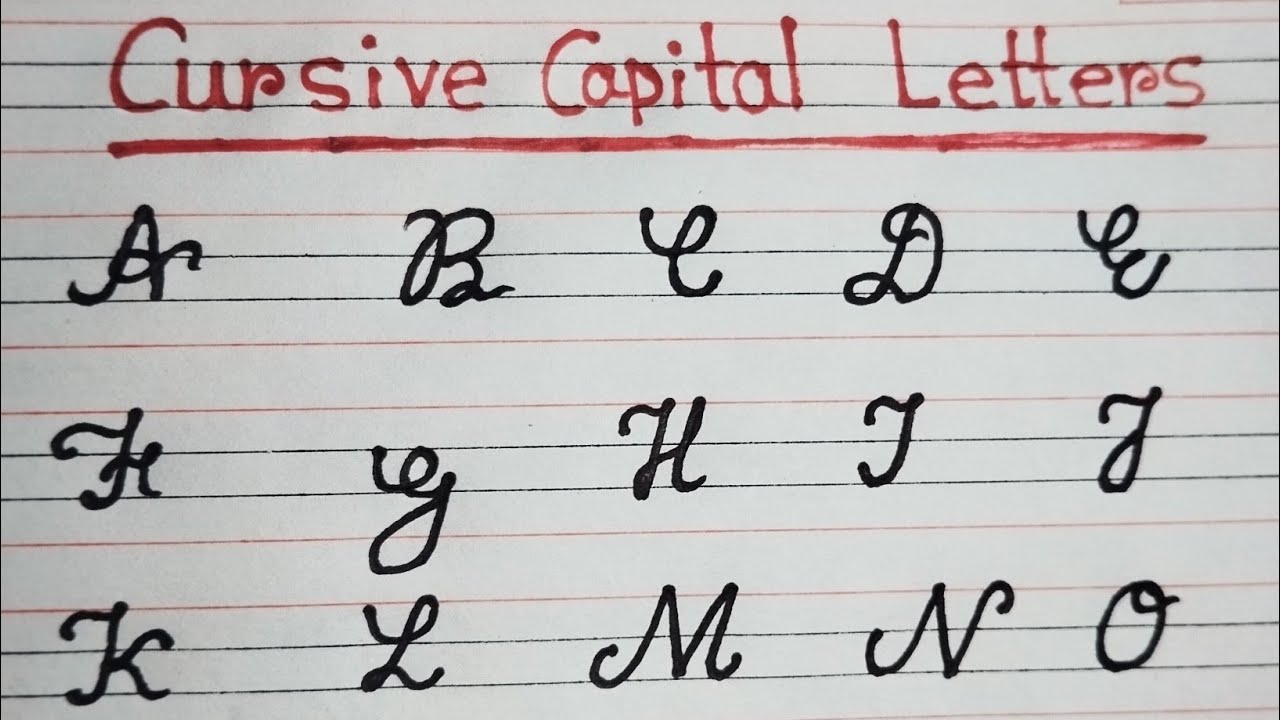 Cursive Capital Letters
A B C D E
F G H I J
K L M N O